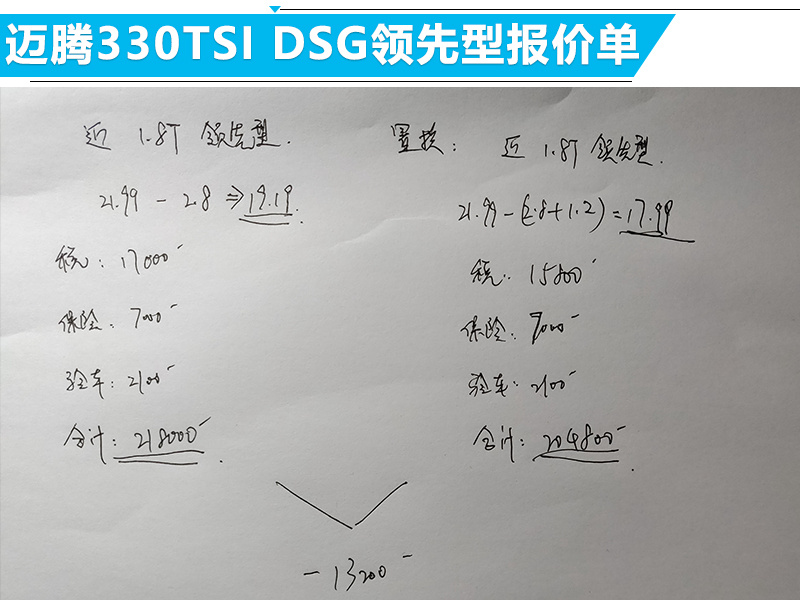 迈腾330TSI DSG领先型报价单
迈 1.8T 领先型.
21.99 - 2.8 ⇒ 19.19.
税: 17000-
保险: 7000-
验车: 2100-
合计: 218000-.
置换: 迈 1.8T 领先型.
21.99-(2.8+1.2)=17.99
税: 15800-
保险: 7000-
验车: 2100-
合计: 204800-.
-13200-